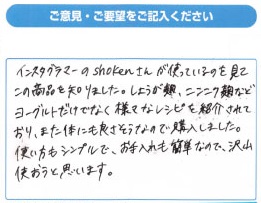 ご意見・ご要望をご記入ください
インスタグラマーのshokenさんが使っているのを見て
この商品を知りました。しょうが麹、ニンニク麹など
ヨーグルトだけでなく様々なレシピを紹介されて
おり、また体にも良さそうなので購入しました。
使い方もシンプルで、お手入れも簡単なので、沢山
使おうと思います。